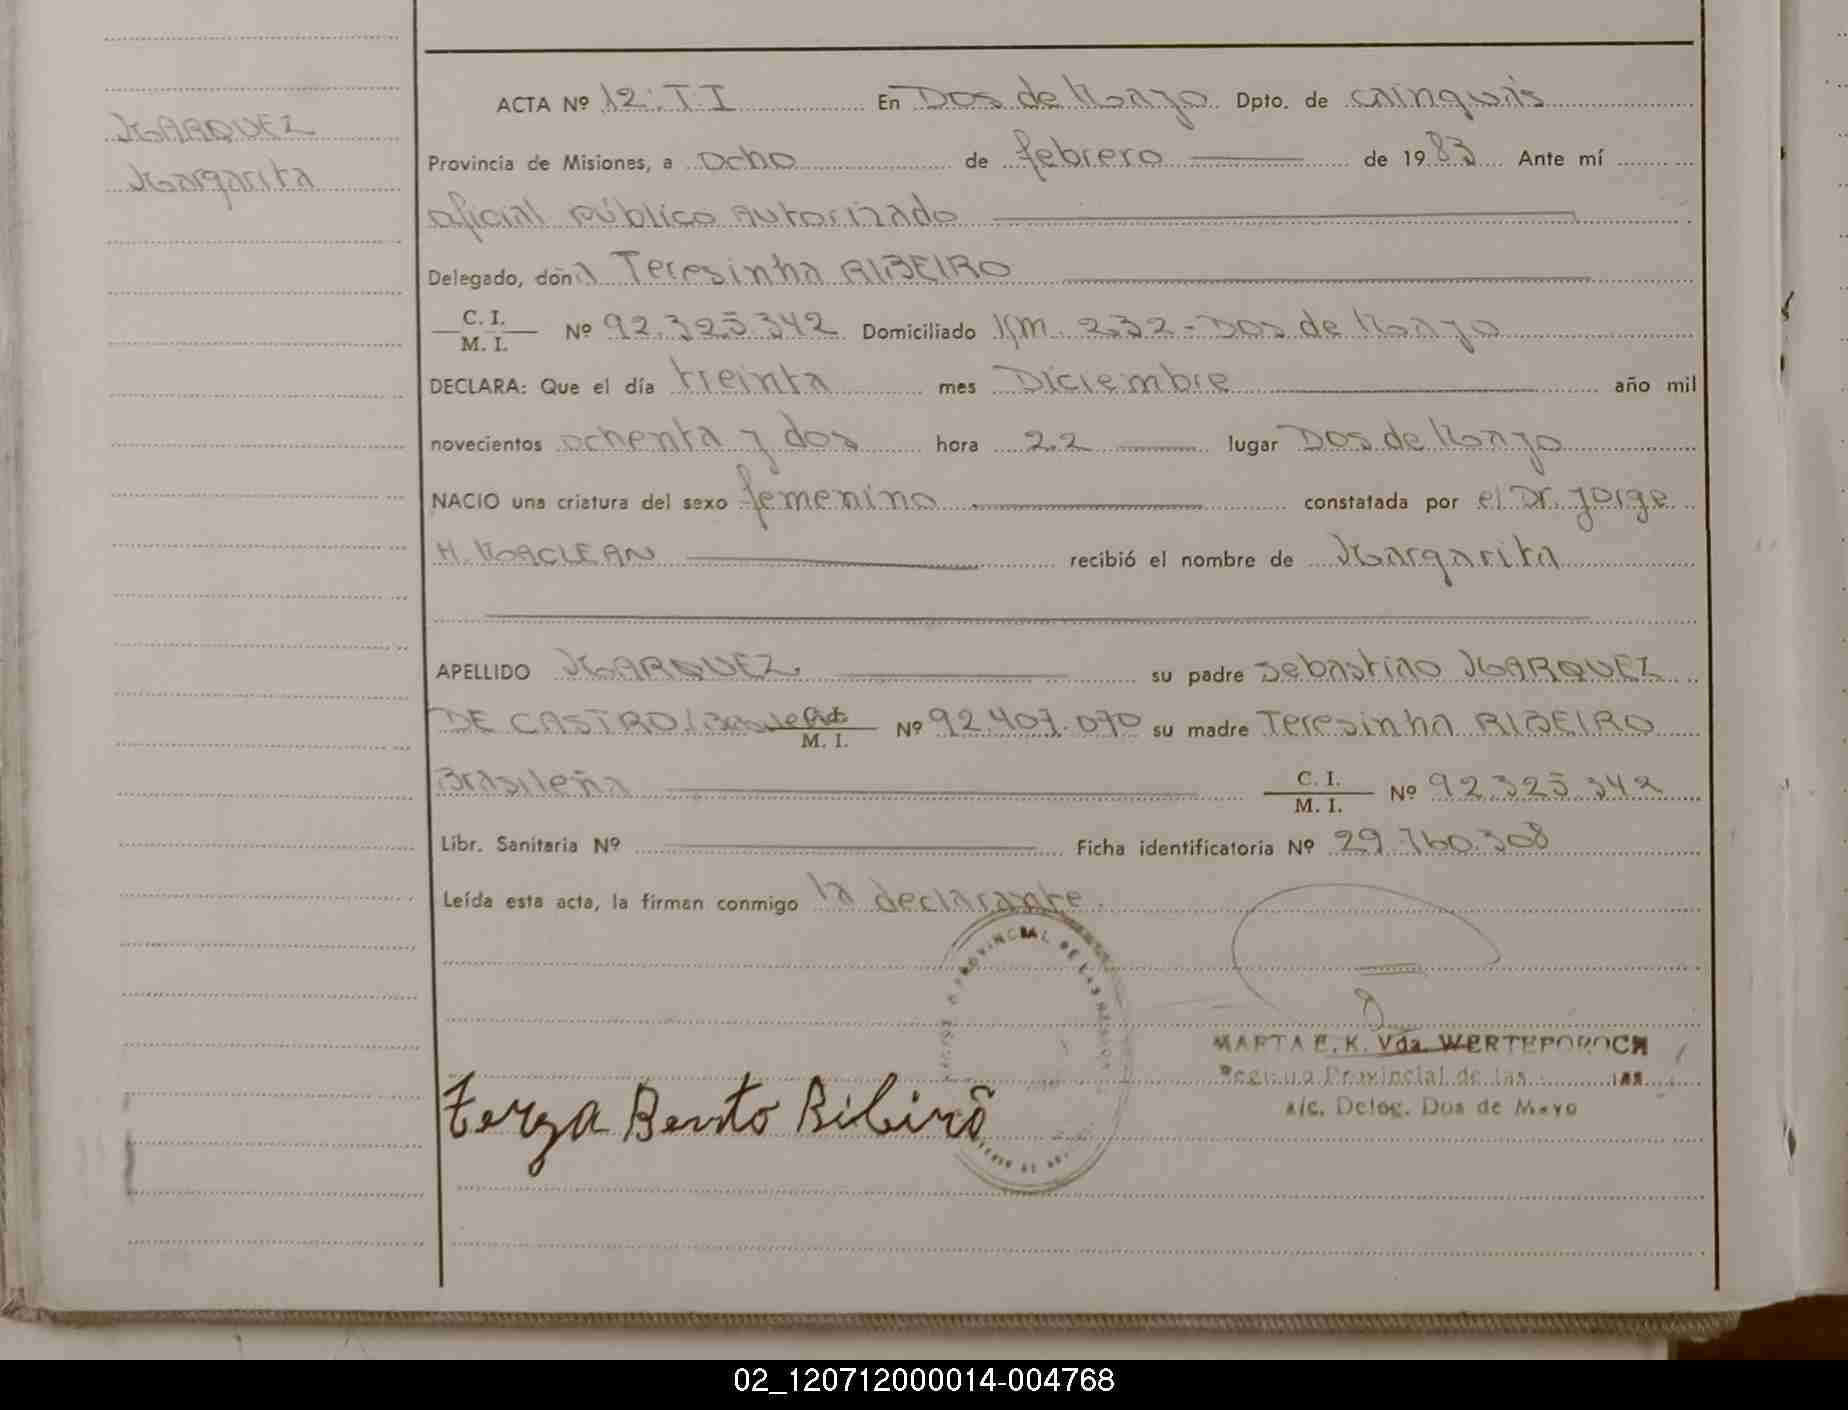 MARQUEZ
Margarita
ACTA Nº 12. T I En Dos de Mayo Dpto. de cainguás
Provincia de Misiones, a ocho de febrero de 1983 Ante mí
oficial público autorizado
Delegado, doña Teresinha RIBEIRO
C. I.
M. I. Nº 92.325.342 Domiciliado Km. 232 - Dos de Mayo
DECLARA: Que el día treinta mes Diciembre año mil
novecientos ochenta y dos hora 22 lugar Dos de Mayo
NACIO una criatura del sexo femenino constatada por el Dr. Jorge
H. MACLEAN recibió el nombre de Margarita
APELLIDO MARQUEZ. su padre Sebastiao MARQUEZ
DE CASTRO M. I. Nº 92.407.070 su madre Teresinha RIBEIRO
Brasileña C. I.
M. I. Nº 92.325.342
Libr. Sanitaria Nº Ficha identificatoria Nº 29.760.308
Leída esta acta, la firman conmigo la declarante.
PROVINCIAL DE LAS
MARTA E. K. Vda. WERTEPOROCH
Registro Provincial de las
a/c. Deleg. Dos de Mayo
terza Bento Ribirô
02_120712000014-004768